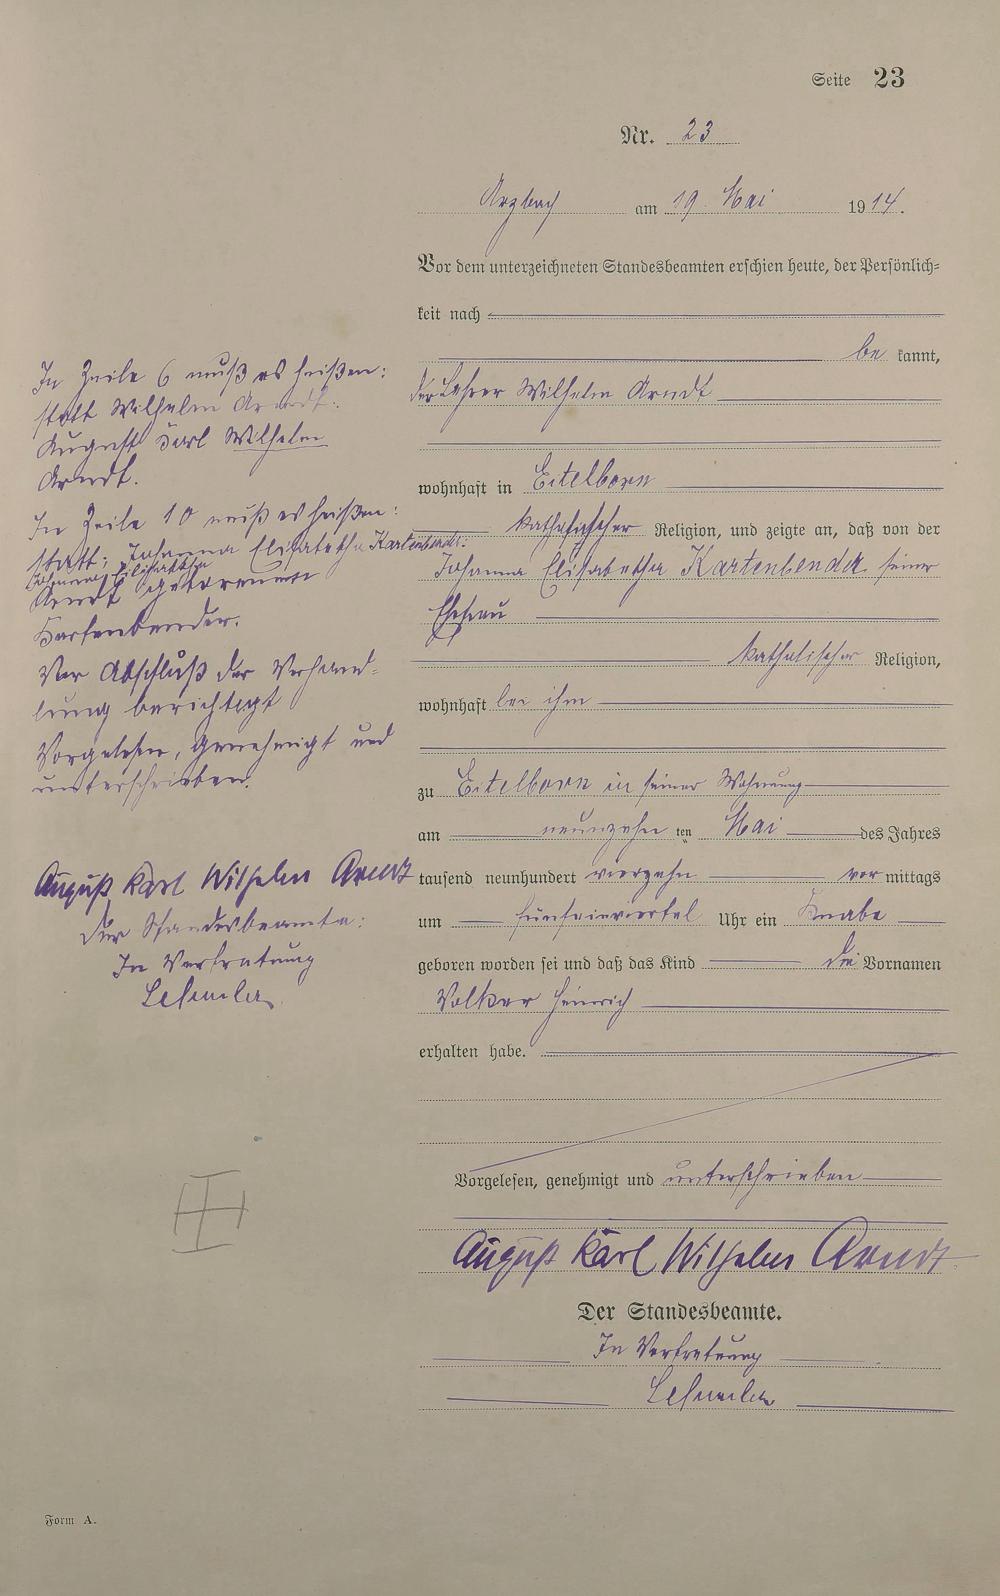 Seite 23
Nr. 23
Arzbach am 19 Mai 1914.
Vor dem unterzeichneten Standesbeamten erschien heute, der Persönlich-
keit nach
be kannt,
der Lehrer Wilhelm Arndt
wohnhaft in Eitelborn
katholischer Religion, und zeigte an, daß von der
Johanna Elisabetha Kartenbender seiner
Ehefrau
katholischer Religion,
wohnhaft bei ihm
zu Eitelborn in seiner Wohnung
am neunzehn ten Mai des Jahres
tausend neunhundert vierzehn vor mittags
um fünfeinviertel Uhr ein Knabe
geboren worden sei und daß das Kind die Vornamen
Volker Heinrich
erhalten habe.
Vorgelesen, genehmigt und unterschrieben
August Karl Wilhelm Arndt
Der Standesbeamte.
In Vertretung
In Zeile 6 muß es heißen:
statt Wilhelm Arndt:
August Karl Wilhelm
Arndt.
In Zeile 10 muß es heißen:
statt: Johanna Elisabetha Kartenbender:
Johanna Elisabetha
Arndt geborene
Kartenbender.
Vor Abschluß der Verhand-
lung berichtigt
Vorgelesen, genehmigt und
unterschrieben.
August Karl Wilhelm Arndt
Der Standesbeamte:
In Vertretung
Form A.